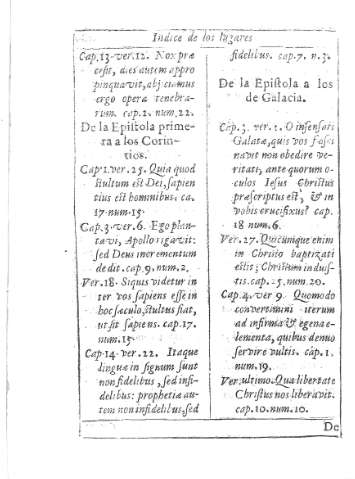 Indice de los lugares
Cap.13.ver.12. Nox præ
cessit, dies autem appro
pinquavit, abjiciamus
ergo opera tenebra-
rum. cap.2. num.22.
De la Epistola prime-
ra a los Corin-
tios.
Cap 1.ver.25. Quia quod
stultum est Dei, sapien
tius est hominibus. ca.
17.num.15.
Cap.3.ver.6. Ego plan-
tavi, Apollo rigavit:
sed Deus incrementum
dedit. cap.9.num.2.
Ver.18. Siquis videtur in
ter vos sapiens esse in
hoc sæculo, stultus fiat,
ut sit sapiens. cap.17.
num.15
Cap.14.ver.22. Itaque
linguæ in signum sunt
non fidelibus, sed infi-
delibus: prophetiæ au-
tem non infidelibus, sed
fidelibus. cap.7. n.3.
De la Epistola a los
de Galacia.
Cap.3. ver.1. O insensati
Galatæ, quis vos fasci
navit non obedire ve-
ritati, ante quorum o-
culos Iesus Christus
præscriptus est, & in
vobis crucifixus? cap.
18 num.6.
Ver.27. Quicunque enim
in Christo baptizati
estis; Christum indui-
stis. cap.25.num.20.
Cap.4.ver 9. Quomodo
convertimini iterum
ad infirma & egena e-
lementa, quibus denuo
servire vultis. cap.1.
num.19.
Ver. ultimo. Qua libertate
Christus nos liberavit.
cap.10.num.10.
De